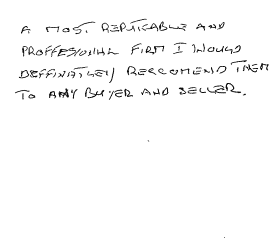 A MOST. REPUTICABLE AND
PROFFESIONAL FIRM I WOULD
DEFFINATLEY RECCOMEND THEM
TO ANY BUYER AND SELLER.